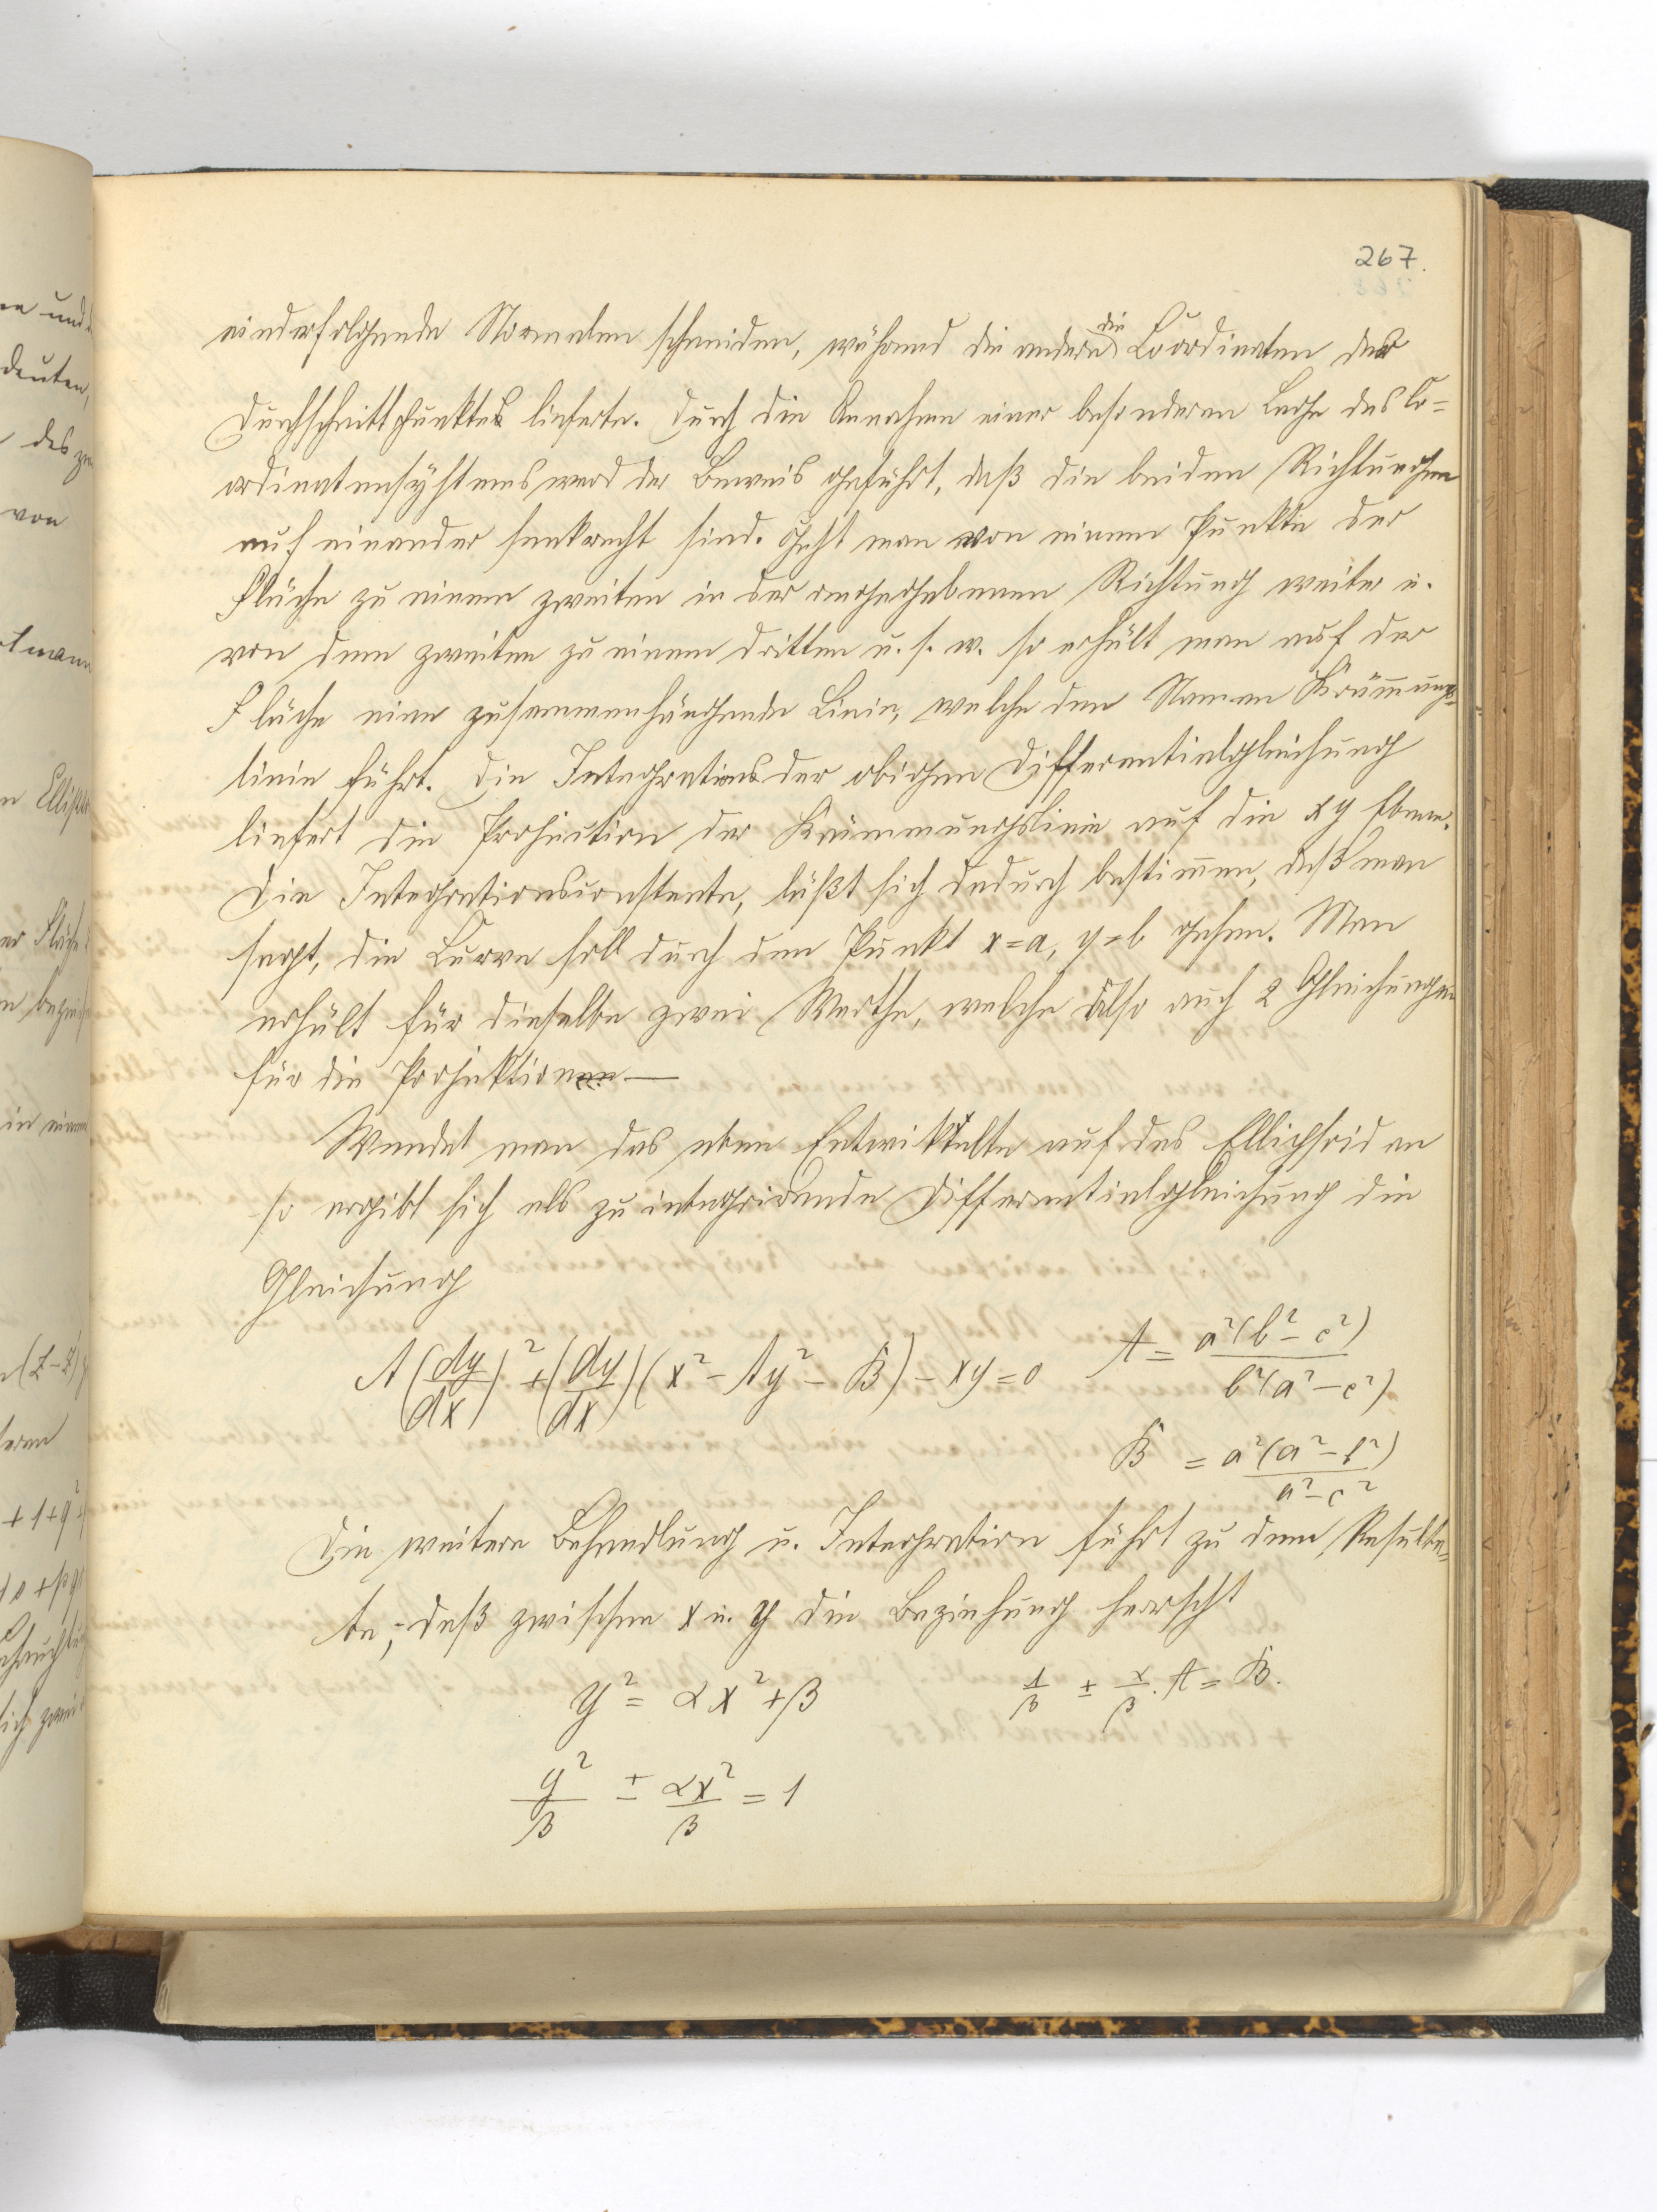 267.
einderfolgende Normalen schneiden, während die andere die Coordinaten des
Durchschnittspunktes lieferte. Durch die Annahme einer besonderen Lage des Co=
ordinatensystems ward der Beweis geführt, daß die beiden Richtungen
auf einander senkrecht sind. Geht man von einem Punkte der
Fläche zu einem zweiten in der angegebenen Richtung weiter u.
von dem zweiten zu einem dritten u. s. w. so erhält man auf der
Fläche eine zusammenhängende Linie, welche den Namen Krümmungs=
linie führt. Die Integration der obigen Differentialgleichung
liefert die Projection der Krümmungslinie auf die xy Ebene.
Die Integrationsconstante, läßt sich dadurch bestimmen, daß man
sagt, die Curve soll durch den Punkt x=a, y=b gehen. Man
erhält für dieselbe zwei Werthe, welche also auch 2 Gleichungen
für die Projektionen —
Wendet man das eben Entwikkelte auf das Ellipsoid an
so ergibt sich als zu integrirende Differentialgleichung die
Gleichung
A(dy/dx)² + (dy/dx)(x² - Ay² - B) - xy = 0 A = a²(b² - c²) / b²(a² - c²)
B = a²(a² - b²) / a² - c²
Die weitere Behandlung u. Integration führt zu dem Resulta=
te, daß zwischen x u. y die Beziehung herrscht
y² = αx² + β 1/β ± α/β . A = B.
y²/β ± αx²/β = 1